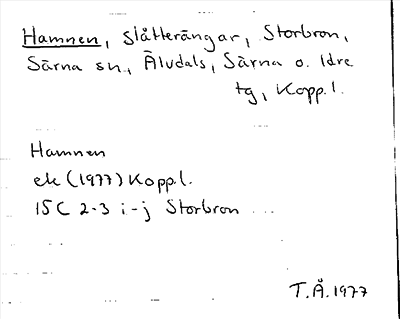 Hamnen, slåtterängar, Storbron,
Särna sn., Älvdals, Särna o. Idre
tg, Kopp.l.
Hamnen
ek (1977) Kopp.l.
15C 2-3 i-j Storbron
T.Å.1977